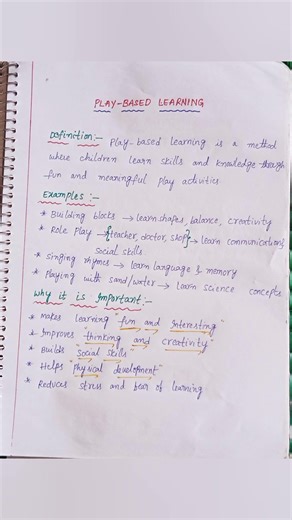 PLAY-BASED LEARNING
Definition:- Play-based learning is a method
where children learn skills and knowledge through
fun and meaningful play activities.
Examples:-
* Building blocks → learn shapes, balance, creativity
* Role Play → {teacher, doctor, shop} → learn communication &
social skills
* Singing rhymes → learn language & memory
* Playing with sand/water → learn science concepts
Why it is Important:-
* Makes learning "fun and interesting"
* Improves "thinking and creativity"
* Builds "social skills"
* Helps "physical development"
* Reduces stress and fear of learning